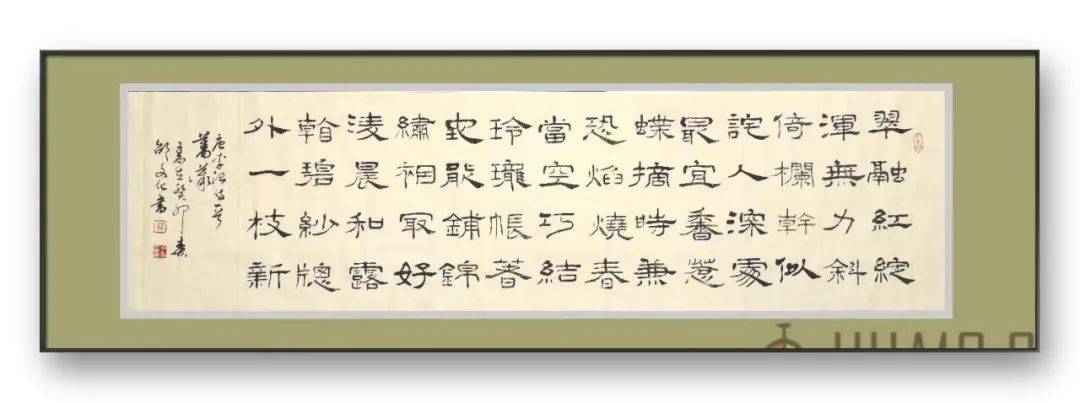 翠融紅綻
渾無力斜
倚欄幹似
詫人深處
最宜香惹
蝶摘時兼
恐焰燒春
當空巧結
玲瓏帳著
地能鋪錦
繡裀最好
淩晨和露
看碧紗牕
外一枝新
唐李詩一首
薔薇
癸卯春
文化書